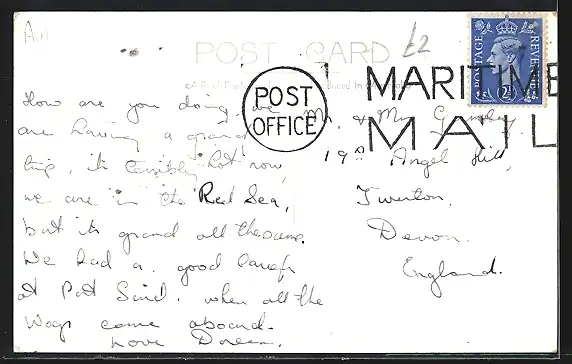 £2
POST CARD
POSTAGE REVENUE
2½
POST OFFICE
MARITIME MAIL
How are you doing, we
are having a grand
trip, its terribly hot now,
we are in the Red Sea,
but its grand all the same.
We had a good laugh
at Port Said. when all the
Wogs came aboard.
Love Doreen.
Mr. & Mrs.
19 Angel Hill,
Tiverton,
Devon,
England.